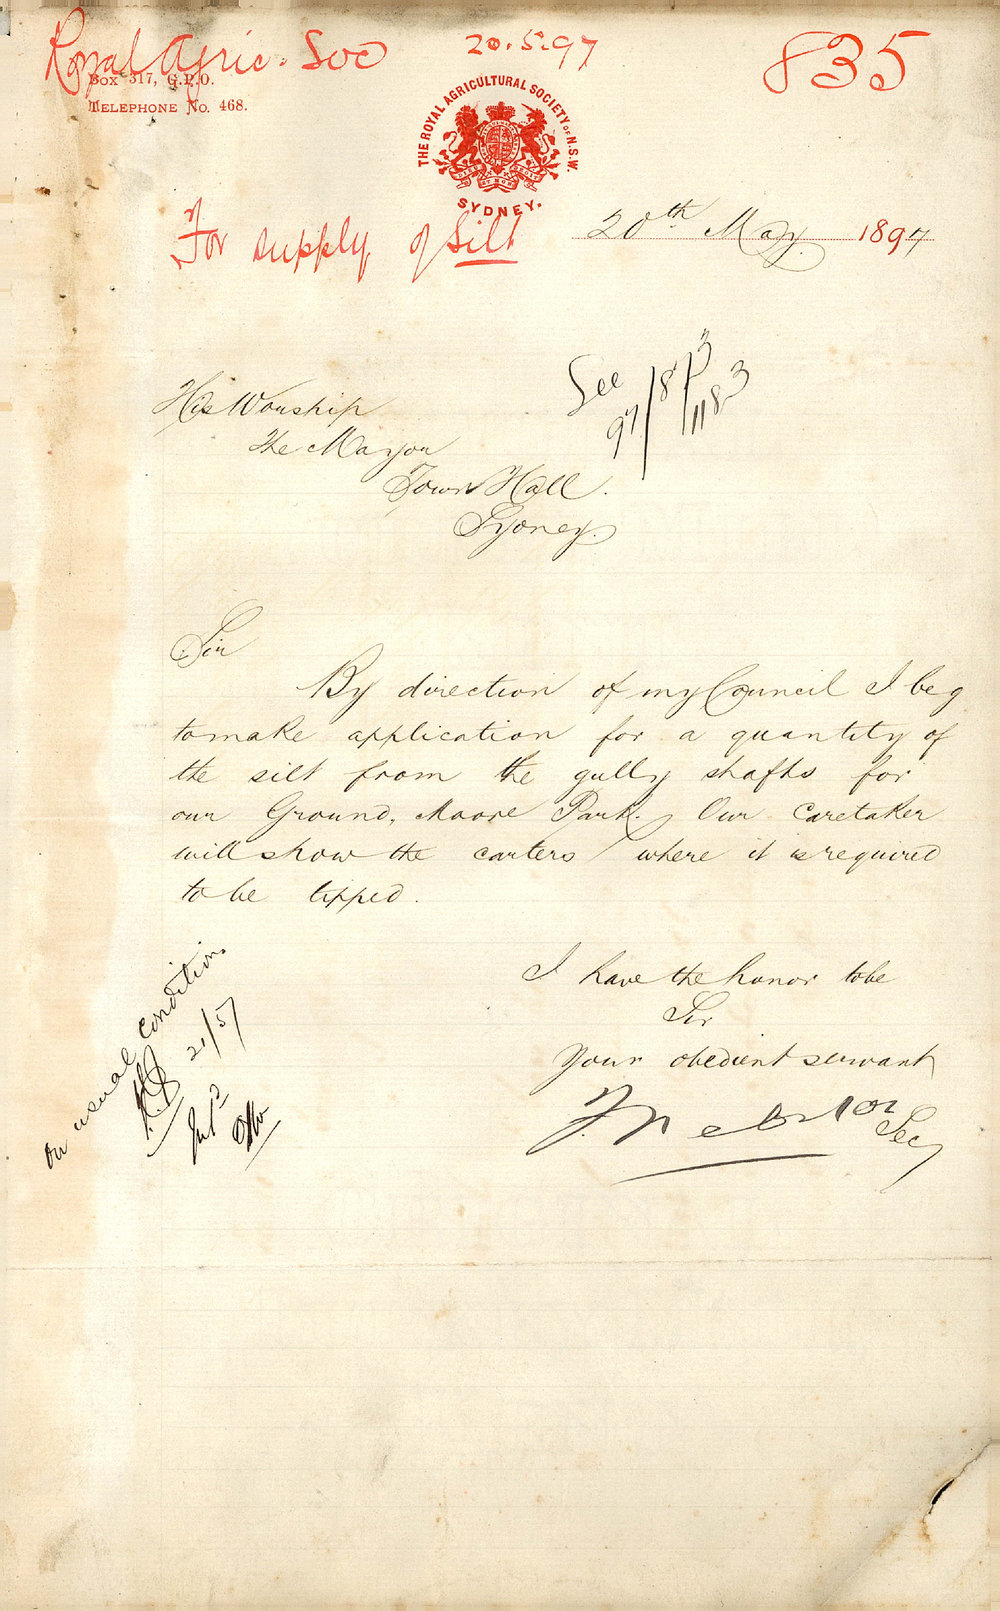 Royal Agric. Soc
20.5.97
835
Box 317, G.P.O.
Telephone No. 468.
THE ROYAL AGRICULTURAL SOCIETY OF N.S.W.
SYDNEY.
For supply of Silt
20th May 1897
See
97/813
1183
His Worship
The Mayor
Town Hall.
Sydney.
Sir
By direction of my Council I beg
to make application for a quantity of
the silt from the gully shafts for
our Ground, Moore Park. Our caretaker
will show the carters where it is required
to be tipped.
I have the honor to be
Sir
Your obedient servant
F Webster
Sec
On usual conditions
21/5/